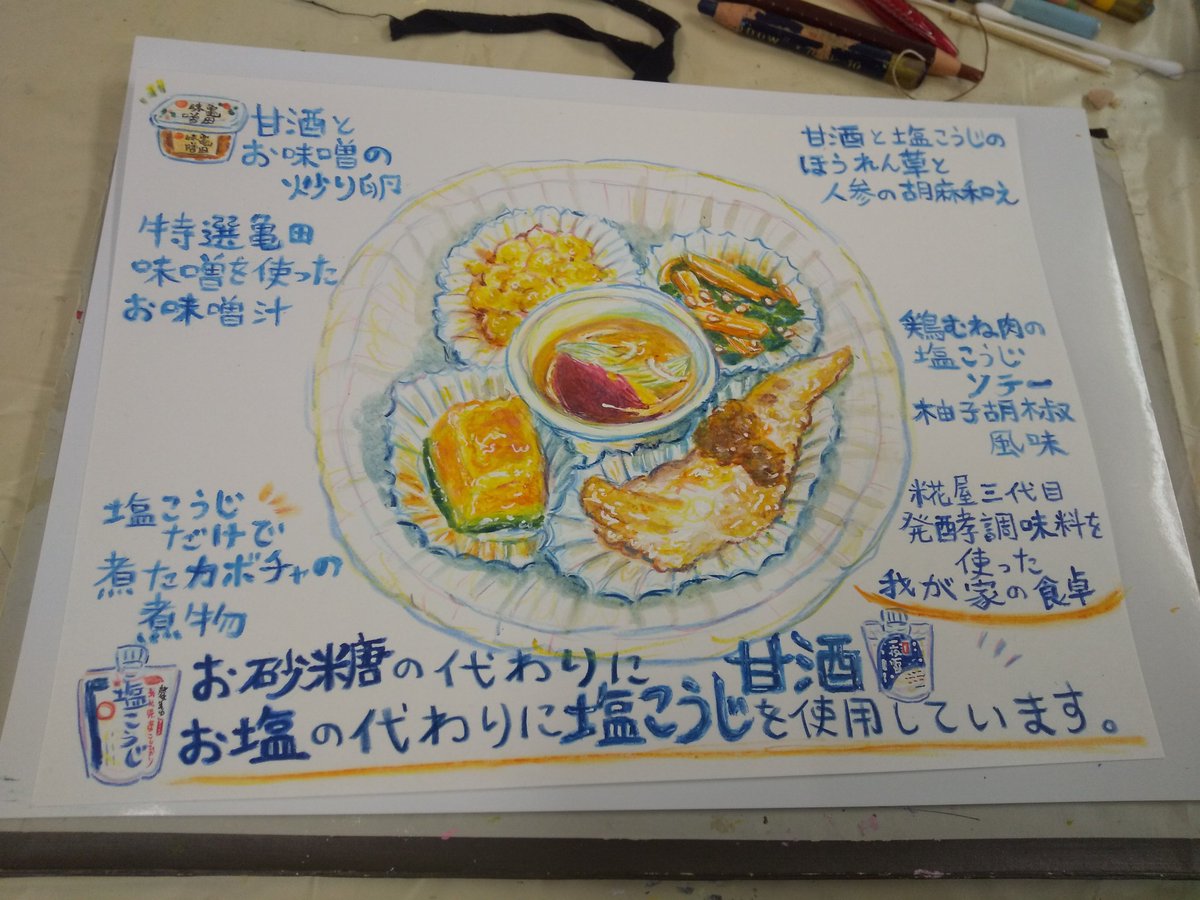 亀田
味噌
亀田
味噌
甘酒と
お味噌の
炒り卵
特選亀田
味噌を使った
お味噌汁
甘酒と塩こうじの
ほうれん草と
人参の胡麻和え
鶏むね肉の
塩こうじ
ソテー
柚子胡椒
風味
塩こうじ
だけで
煮たカボチャの
煮物
糀屋三代目
発酵調味料を
使った
我が家の食卓
塩こうじ
お砂糖の代わりに 甘酒
お塩の代わりに塩こうじを使用しています。